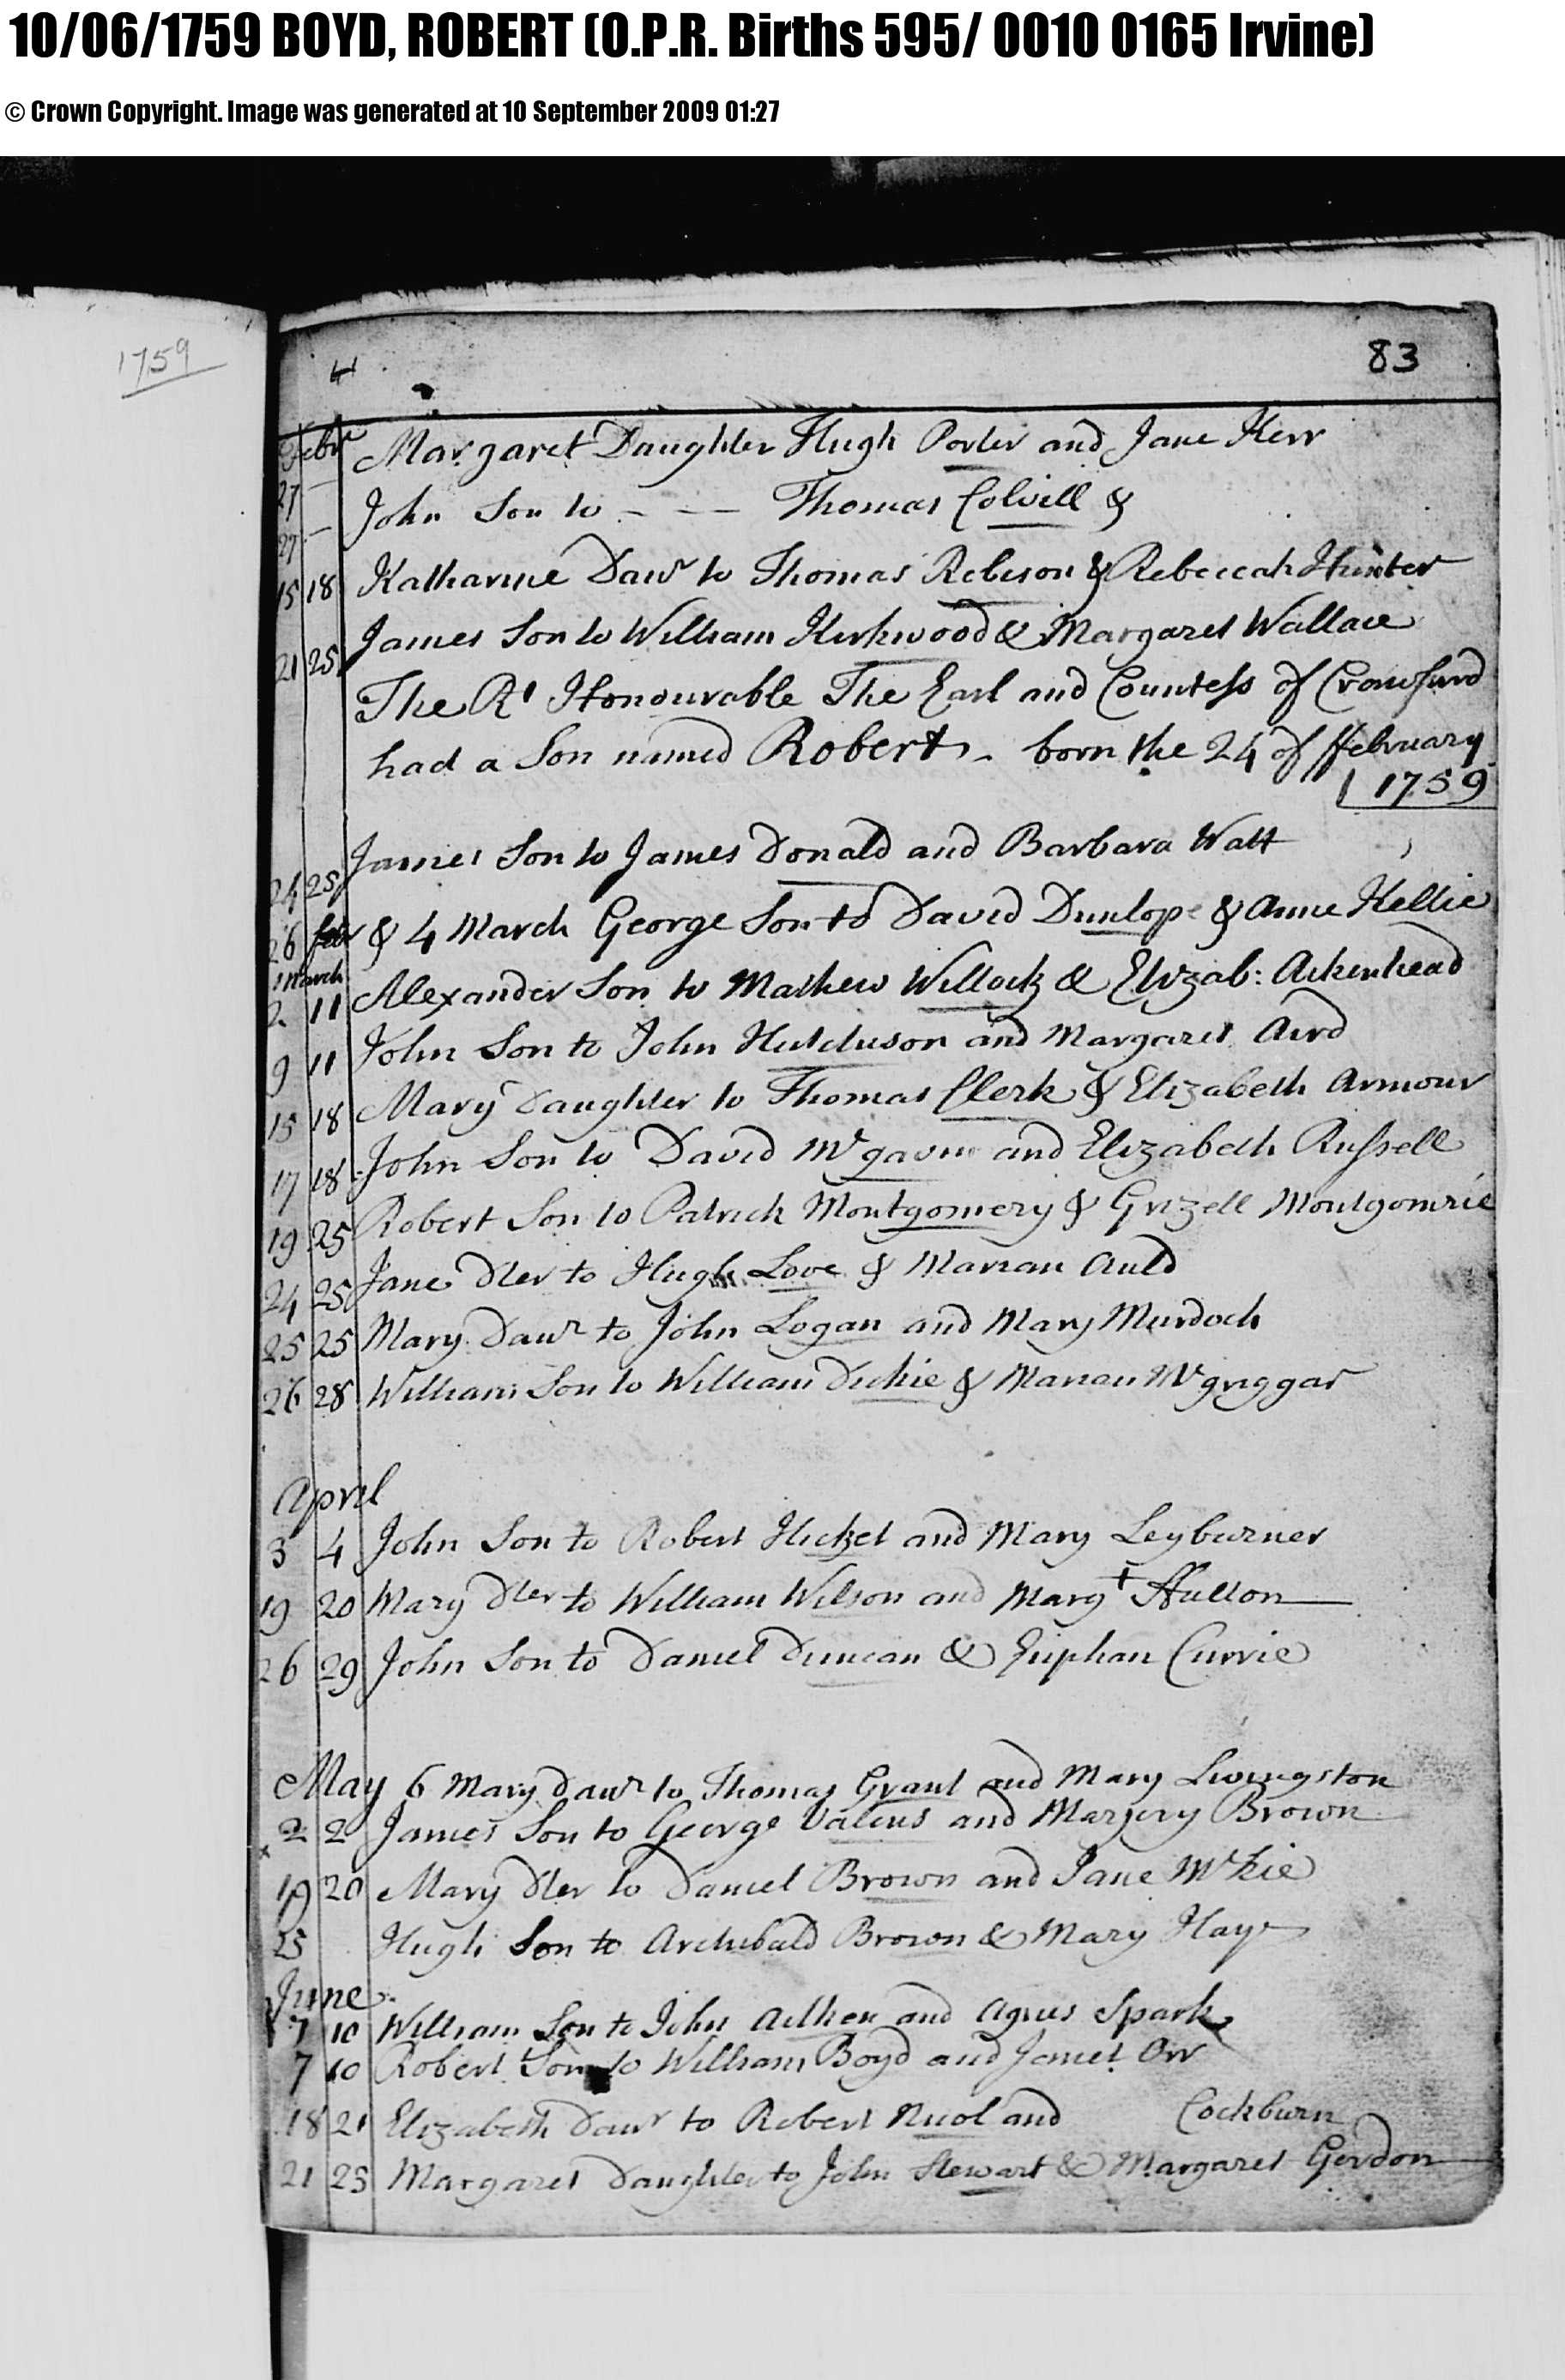 10/06/1759 BOYD, ROBERT (O.P.R. Births 595/ 0010 0165 Irvine)
© Crown Copyright. Image was generated at 10 September 2009 01:27
1759
83
Febr Margaret Daughter Hugh Porter and Jane Kerr
27 — John Son to — — — Thomas Colvill &
27 —
15 18 Katharine Dawr to Thomas Robison & Rebeccah Hunter
21 25 James Son to William Kirkwood & Margaret Wallace
The Rt Honourable The Earl and Countess of Crawfurd
had a Son named Robert - born the 24 of ffebruary
1759
24 25 James Son to James Donald and Barbara Watt
26 febr & 4 March George Son to David Dunlop & Anne Kellie
March
2 11 Alexander Son to Mathew Willock & Elizab: Aikenhead
9 11 John Son to John Hutchison and Margaret Aird
15 18 Mary Daughter to Thomas Clerk & Elizabeth Armour
17 18 John Son to David Mcgavin and Elizabeth Russell
19 25 Robert Son to Patrick Montgomery & Grizell Montgomrie
24 25 Jane Dter to Hugh Love & Marian Auld
25 25 Mary Dawr to John Logan and Mary Murdoch
26 28 William Son to William Dickie & Marian Mcgriggar
April
3 4 John Son to Robert and Mary Leyburner
19 20 Mary Dter to William Wilson and Margt ffulton
26 29 John Son to Daniel Duncan & Euphan Currie
May 6 Mary Dawr to Thomas Grant and Mary Livingston
2 2 James Son to George and Marjery Brown
19 20 Mary Dter to Daniel Brown and Jane Mckie
25 Hugh Son to Archibald Brown & Mary Hay
June
7 10 William Son to John Aitken and Agnes Spark
7 10 Robert Son to William Boyd and Jonet Orr
18 21 Elizabeth Dawr to Robert Nicol and Cockburn
21 25 Margaret Daughter to John Stewart & Margaret Gordon